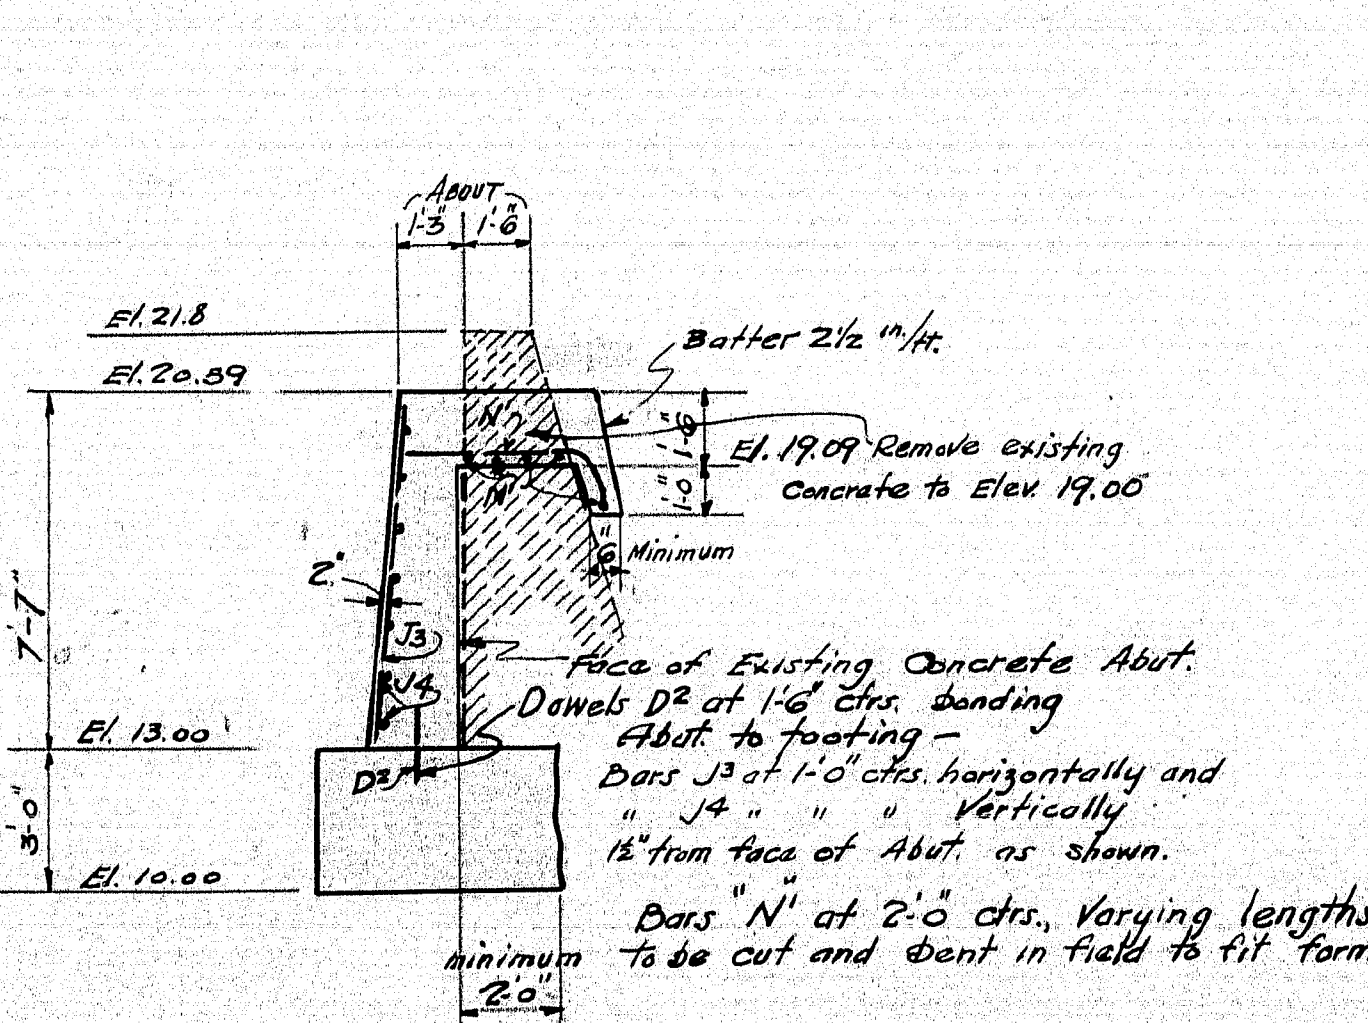 ABOUT
1'-3" 1'-6"
El. 21.8
Batter 2½ in./ft.
El. 20.59
"N"
1'-6"
El. 19.09 Remove existing
Concrete to Elev. 19.00
"M"
1'-0"
6" Minimum
2"
7'-7"
J3
J4
Face of Existing Concrete Abut.
Dowels D2 at 1'-6" ctrs. bonding
Abut. to footing —
El. 13.00
D2
Bars J3 at 1'-0" ctrs. horizontally and
" J4 " " " Vertically
1½" from face of Abut. as shown.
3'-0"
El. 10.00
Bars "N" at 2'-0" ctrs., Varying lengths
to be cut and bent in field to fit form
minimum
2'-0"